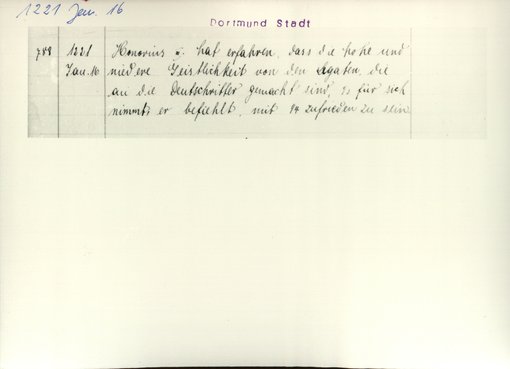 1221 Jan. 16
Dortmund Stadt
788 1221 Honorius hat erfahren, dass die hohe und
Jan. 16 niedere Geistlichkeit von den Legaten, die
an die Deutschritter gemacht sind, für sich
nimmt; er befiehlt, mit 1/4 zufrieden zu sein